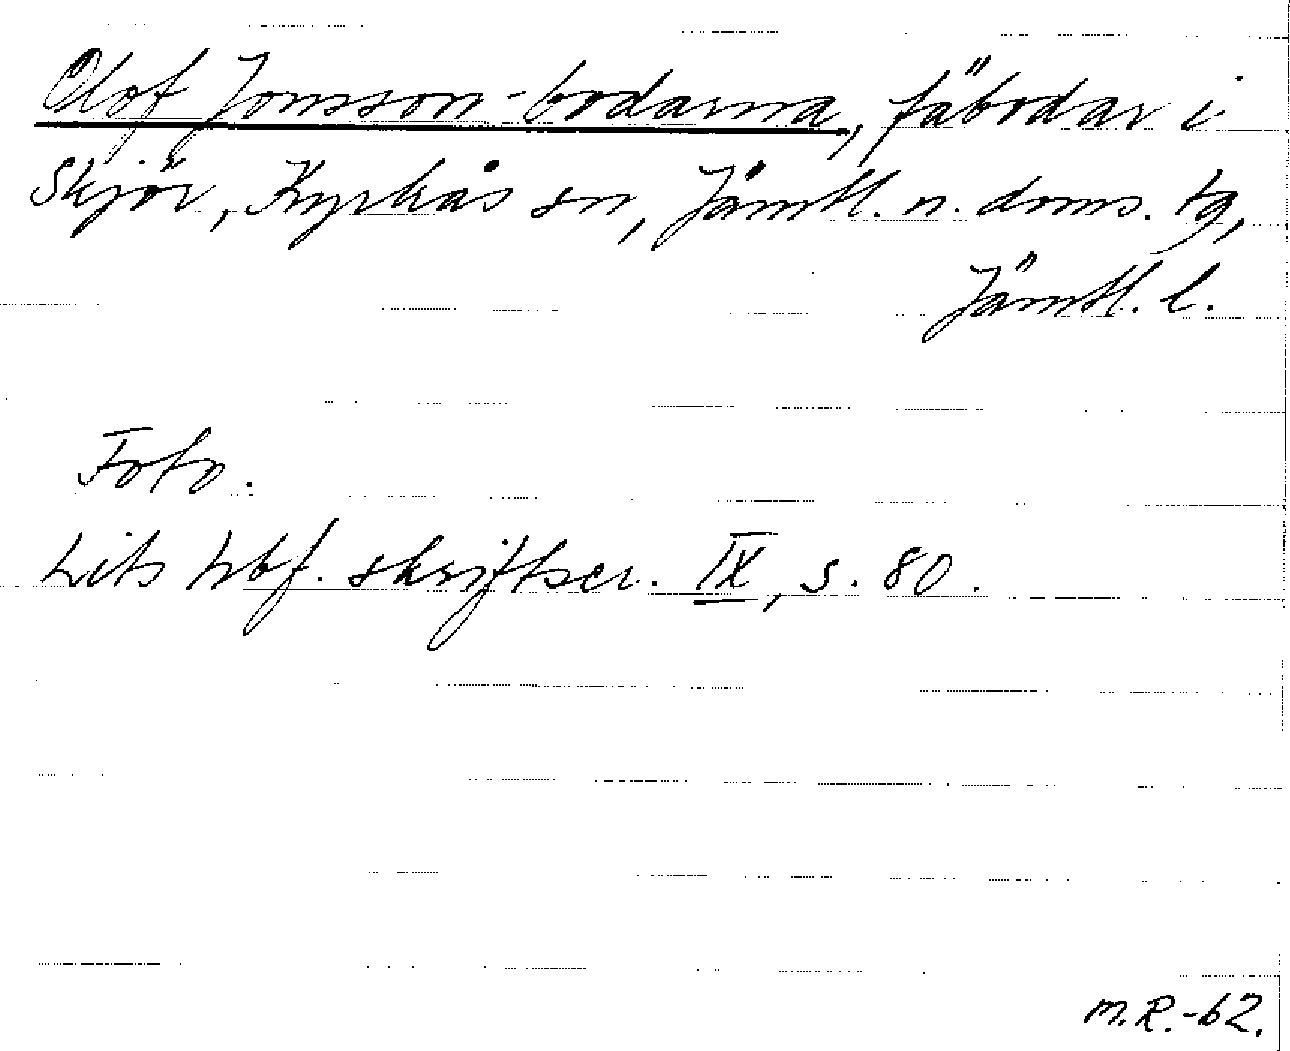 Olof Jonsson-bodarna, fäbodar i
Skjör, Kyrkås sn, Jämtl. n. doms. tg,
Jämtl. l.
Foto.
Lits hbf. skriftser. IX, s. 80.
M.R.-62.